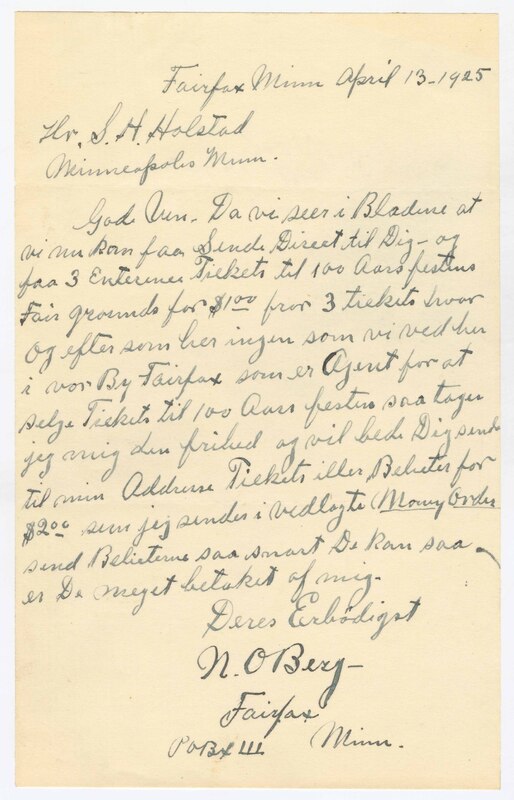 Fairfax Minn April 13-1925
Hr. S. H. Holstad
Minneapolis Minn.
Gode Ven- Da vi seer i Bladene at
vi nu kan faa Sende Direct til Dig- og
faa 3 Enterence Tickets til 100 Aars festens
Fair grounds for $1.00 for 3 tickets hvor
Og efter som her ingen som vi ved her
i vor By Fairfax som er Agent for at
selge Tickets til 100 Aars festen saa tager
jeg mig den frihed og vil bede Dig sende
til min Address Tickets iller Beleter for
$2.00 som jeg sender i vedlagte Money Order
send Beleterne saa snart De kan saa
er De meget betaket af mig-
Deres Erbödigst
N. O Berg-
Fairfax
PO Bx III Minn.